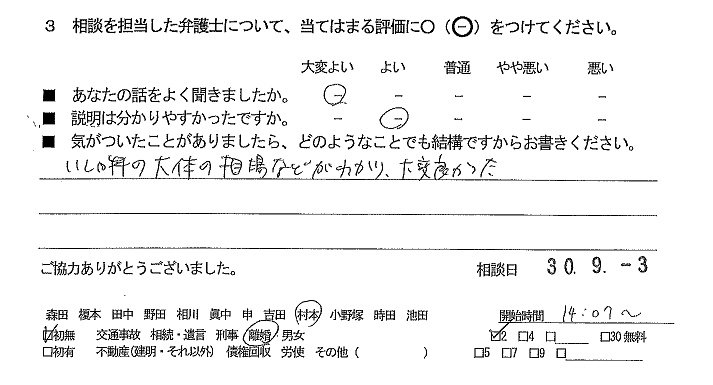 3 相談を担当した弁護士について、当てはまる評価に○（⊖）をつけてください。
大変よい よい 普通 やや悪い 悪い
■ あなたの話をよく聞きましたか。 − − − − −
■ 説明は分かりやすかったですか。 − − − − −
■ 気がついたことがありましたら、どのようなことでも結構ですからお書きください。
の大体の相場などがわかり、大変良かった
ご協力ありがとうございました。 相談日 30. 9. -3
森田 榎本 田中 野田 相川 眞中 申 吉田 村本 小野塚 時田 池田 開始時間 14:07～
☑初無 交通事故 相続・遺言 刑事 離婚 男女 ☑2 □4 □ □30無料
□初有 不動産（建明・それ以外） 債権回収 労使 その他（ ） □5 □7 □9 □